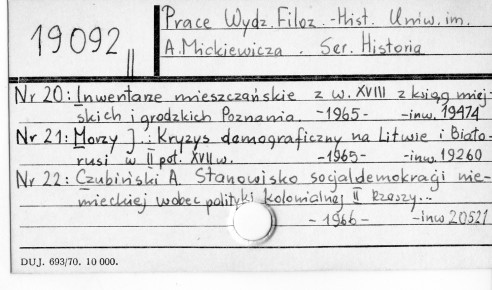 19092 ||
Prace Wydz. Filoz.-Hist. Uniw. im.
A. Mickiewicza. Ser. Historia
Nr 20: Inwentarze mieszczańskie z w. XVIII z ksiąg miej-
skich i grodzkich Poznania. -1965- -inw. 19474
Nr 21: Morzy J.: Kryzys demograficzny na Litwie i Biało-
rusi w II poł. XVII w. -1965- -inw. 19260
Nr 22: Czubiński A. Stanowisko socjaldemokracji nie-
mieckiej wobec polityki kolonialnej II Rzeszy...
-1966- -inw 20521
DUJ. 693/70. 10 000.